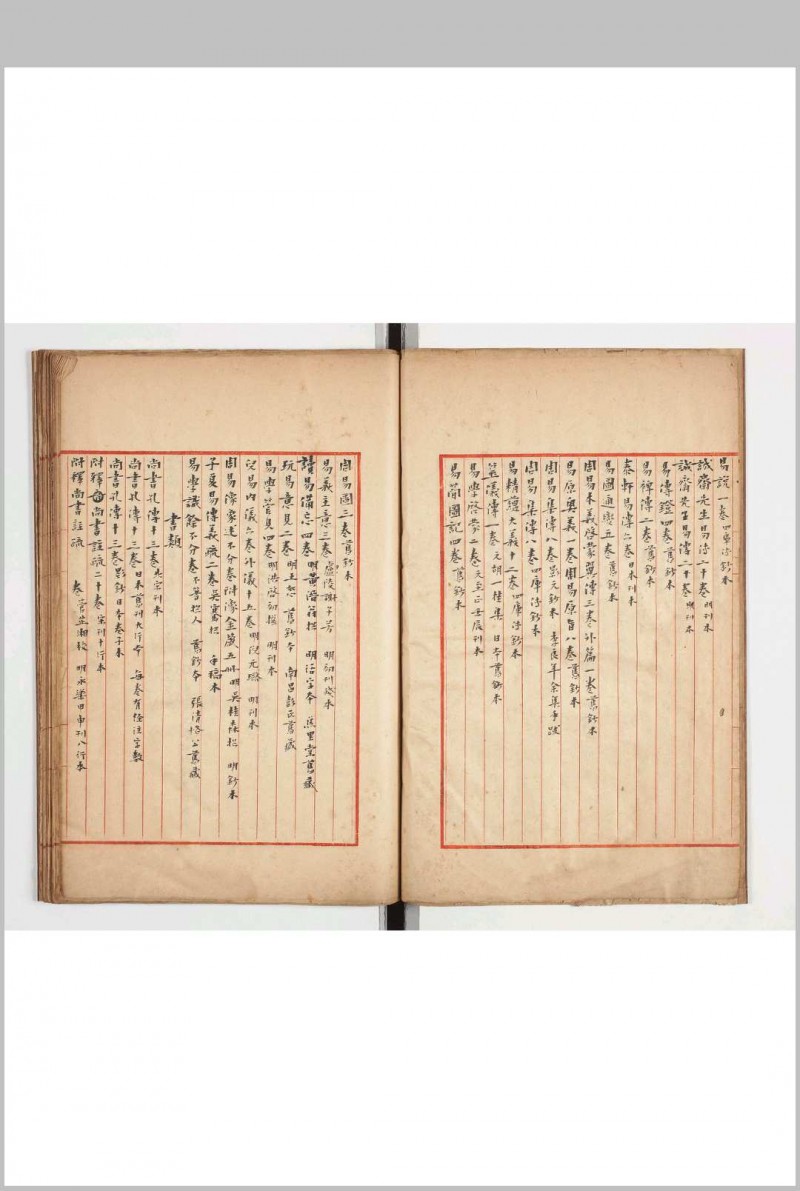 易說一卷 四庫傳鈔本
誠齋先生易傳二十卷 明刊本
誠齋先生易傳二十卷 明刊本
易傳燈四卷 舊鈔本
易裨傳二卷 舊鈔本
泰軒易傳六卷 日本刊本
易圖通變五卷 舊鈔本
周易本義啓蒙翼傳三卷外篇一卷 舊鈔本
易原奧義一卷周易原旨八卷 舊鈔本
周易集傳八卷 影元鈔本 李良年余集手跋
周易集傳八卷 四庫傳鈔本
易精蘊大義十二卷 四庫傳鈔本
筮儀傳一卷 元胡一桂集 日本舊鈔本
易學啓蒙二卷 元至正壬辰刊本
易筒圖記四卷 舊鈔本
周易圖三卷 舊鈔本
易義主意三卷 廬陵謝子芳 明初刊殘本
讀易備忘四卷 明黃潛翁撰 明活字本 焦里堂舊藏
玩易意見二卷 明王恕 舊鈔本 南昌彭氏舊藏
易學管見四卷 明洪啓初撰 明刊本
兒易內儀六卷外儀十五卷 明倪元璐 明刊本
周易像象述不分卷附像金鍼五冊 明吳桂森撰 明鈔本
子夏易傳義疏二卷 吳騫撰 手稿本
易學識餘不分卷 不著撰人 舊鈔本 張清恪公舊藏
書類
尚書孔傳十三卷 北宋刊本
尚書孔傳十三卷 日本舊刊大行本 每卷有經注字數
尚書孔傳十三卷 影鈔日本卷子本
附釋音尚書註疏二十卷 宋刊十行本
附釋尚書註疏 卷 管芷湘校 明永樂甲申刊八行本